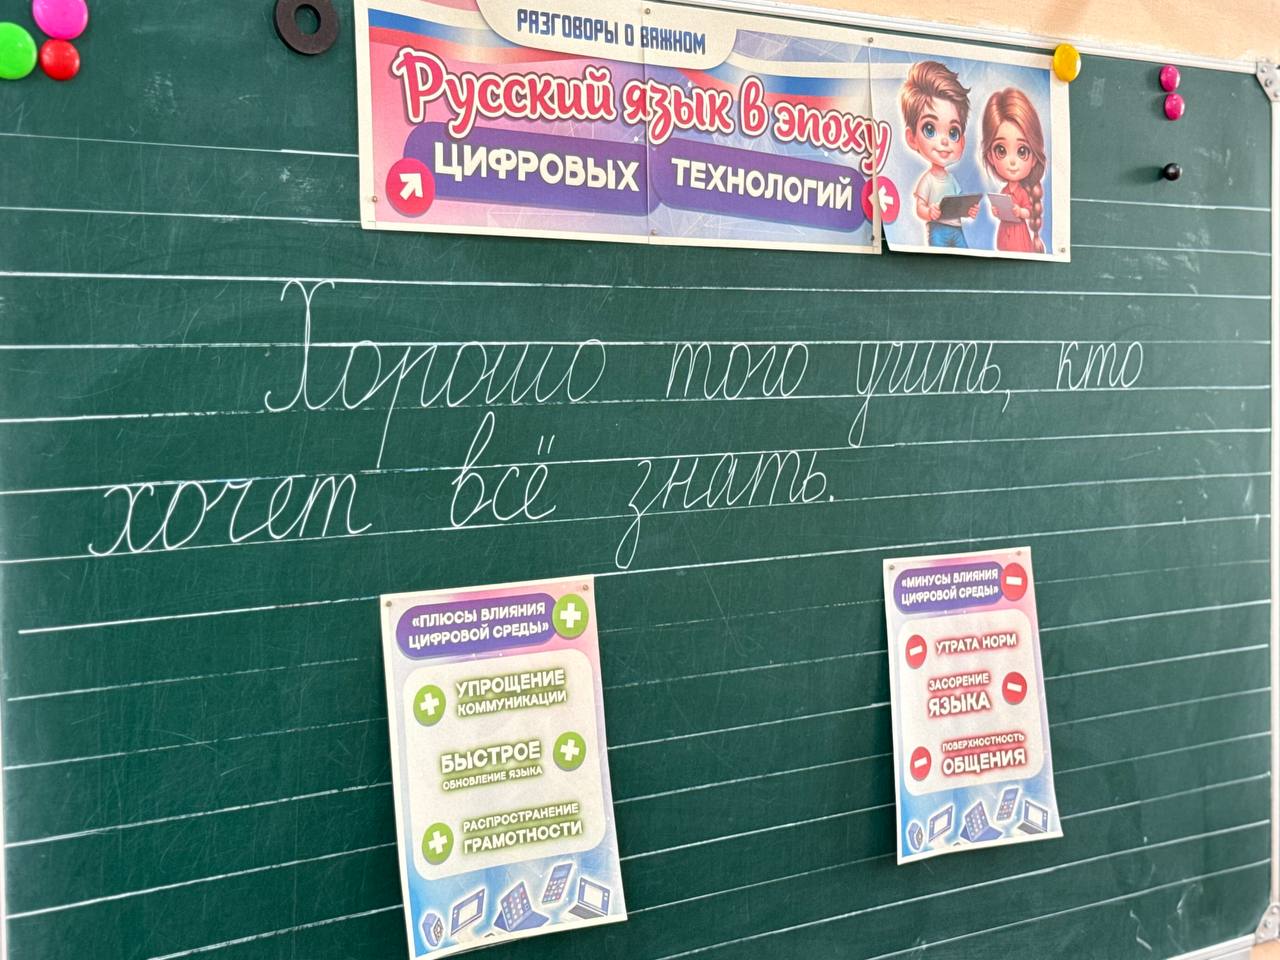 РАЗГОВОРЫ О ВАЖНОМ
Русский язык в эпоху
ЦИФРОВЫХ ТЕХНОЛОГИЙ
Хорошо того учить, кто
хочет всё знать.
«ПЛЮСЫ ВЛИЯНИЯ
ЦИФРОВОЙ СРЕДЫ»
УПРОЩЕНИЕ
КОММУНИКАЦИИ
БЫСТРОЕ
ОБНОВЛЕНИЕ ЯЗЫКА
РАСПРОСТРАНЕНИЕ
ГРАМОТНОСТИ
«МИНУСЫ ВЛИЯНИЯ
ЦИФРОВОЙ СРЕДЫ»
УТРАТА НОРМ
ЗАСОРЕНИЕ
ЯЗЫКА
ПОВЕРХНОСТНОСТЬ
ОБЩЕНИЯ